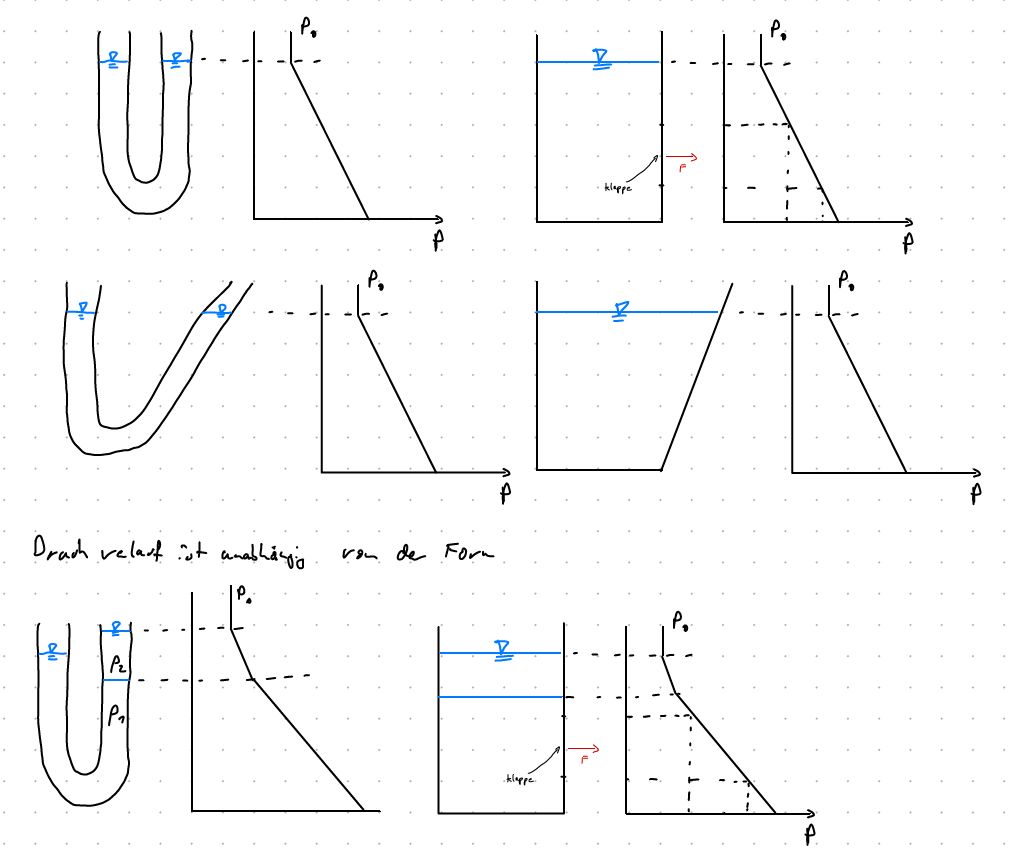 P₀
P₀
klappe
F
P
P
P₀
P₀
P
P
Druck velauf ist unabhängig von der Form
P₀
P₀
ρ₂
ρ₁
klappe
F
P